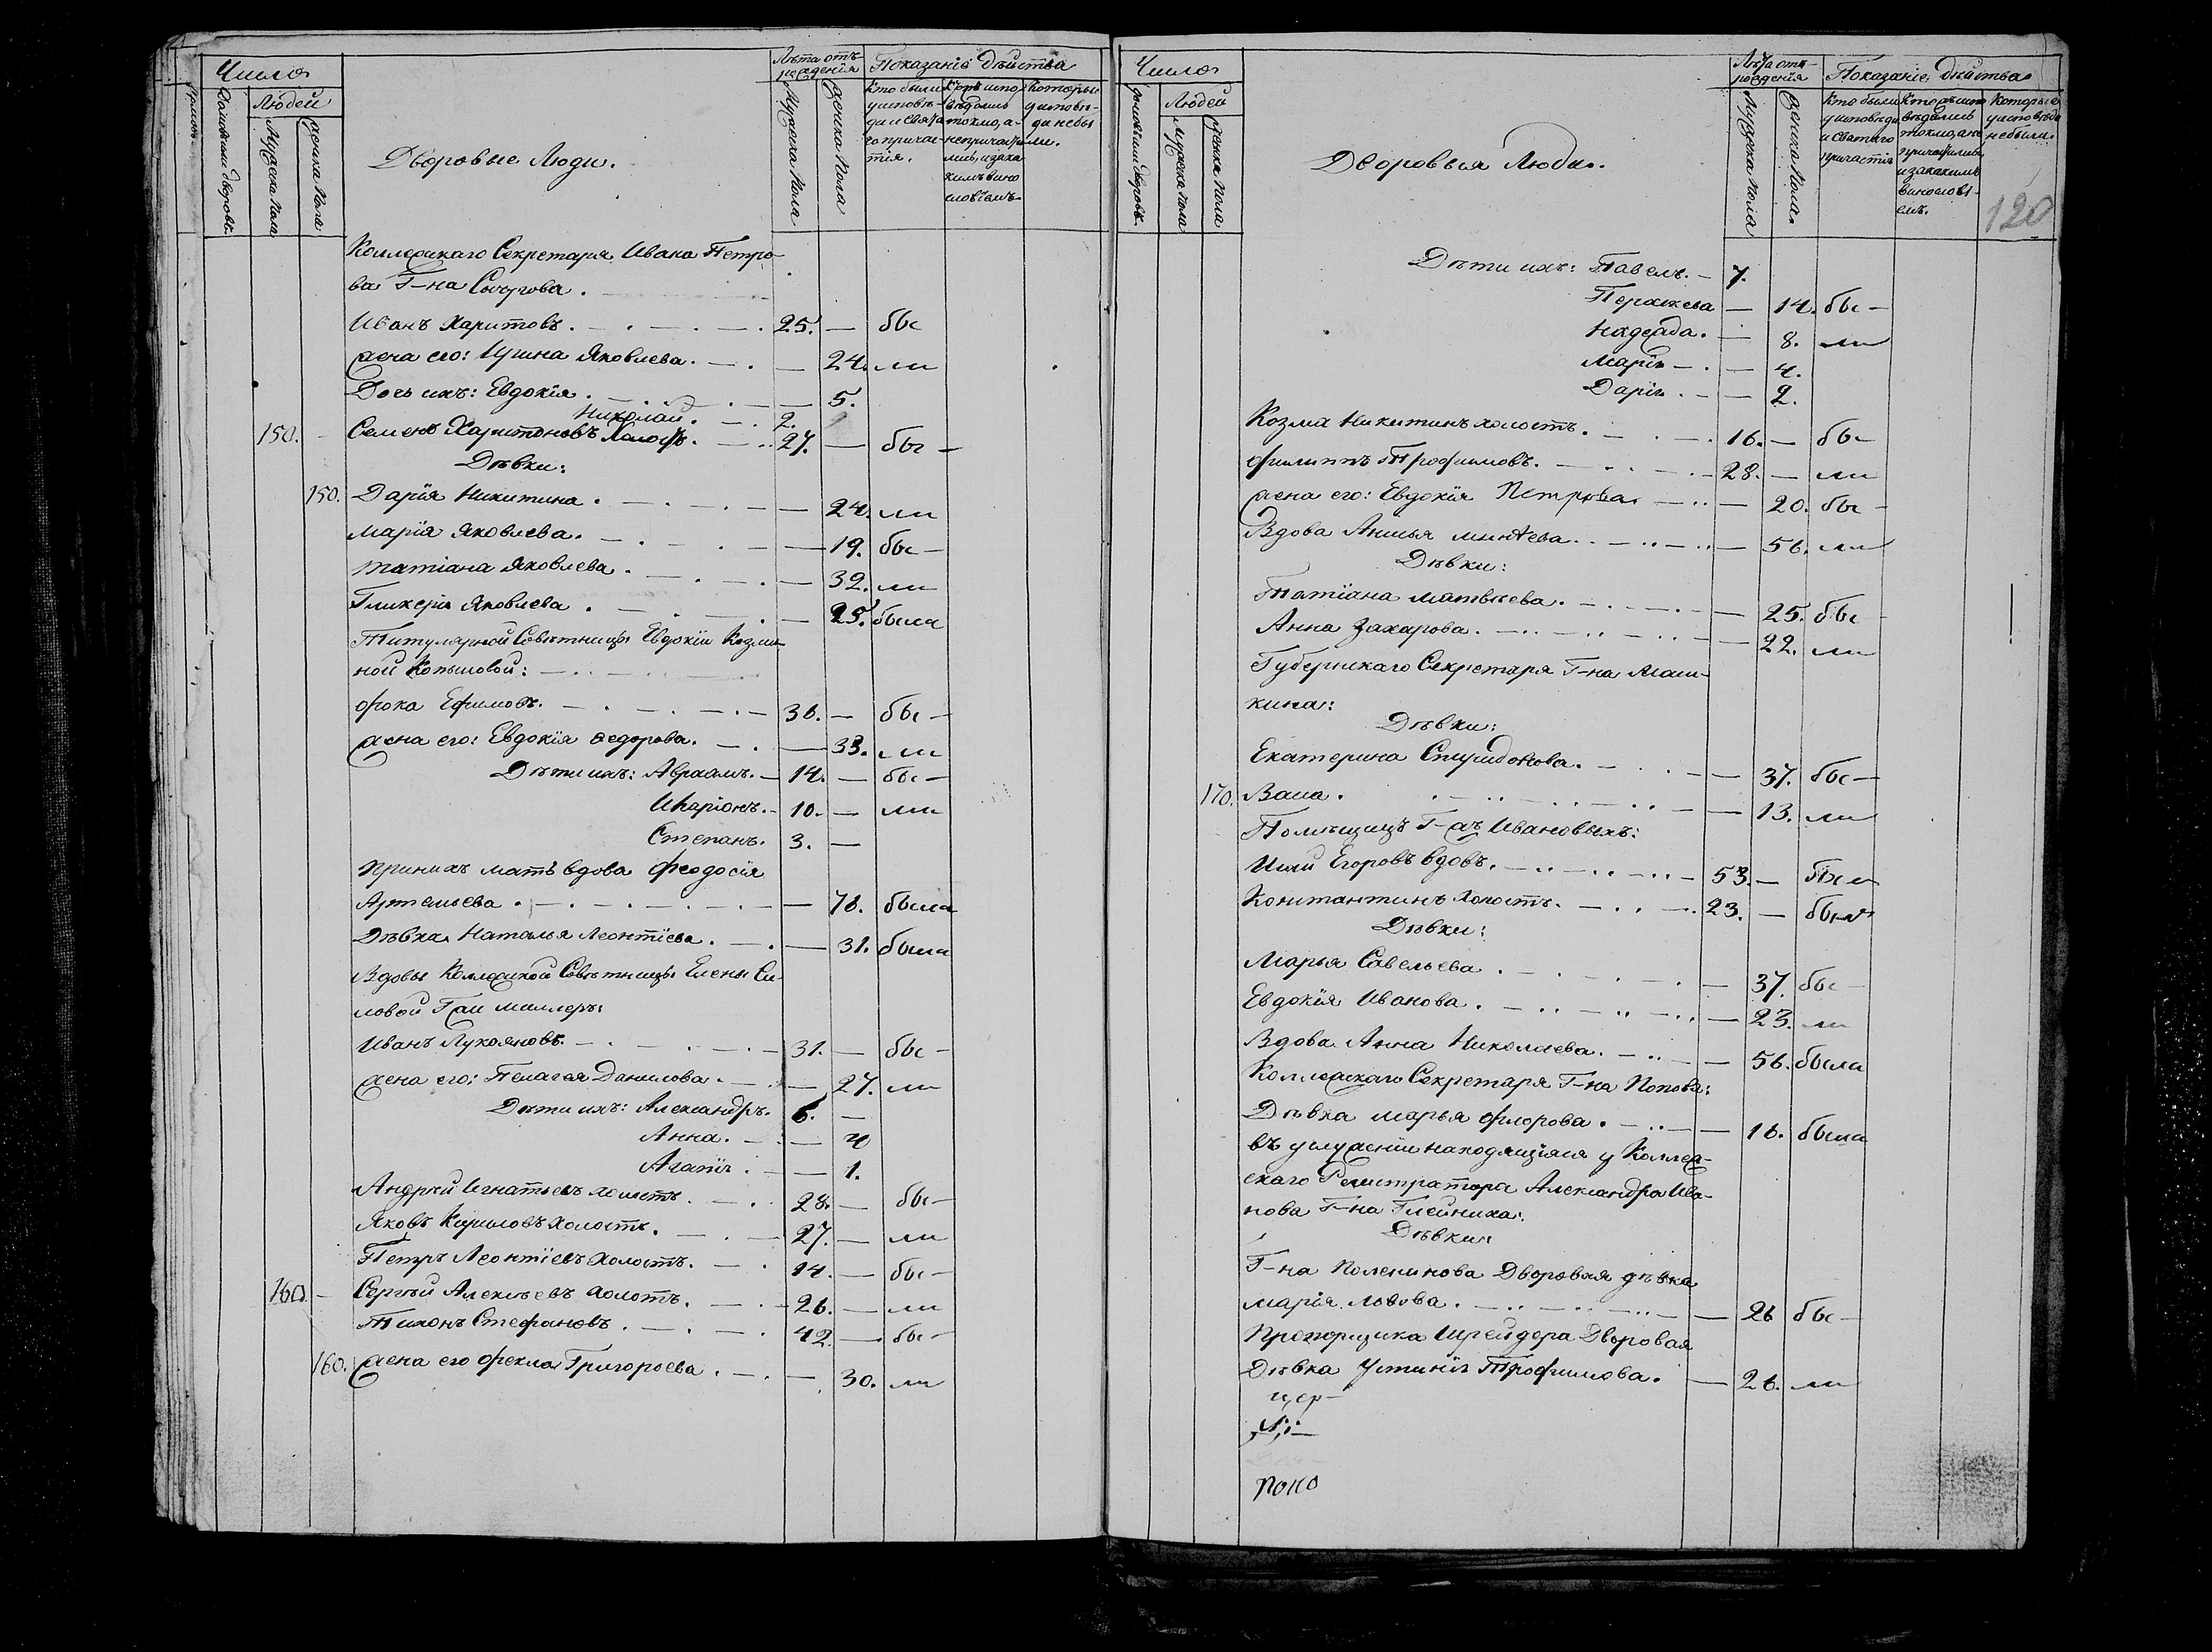 Число
Людей
Домовыми дворовъ.
Мужеска пола
Женска пола
Дворовые Люди.
Лѣта отъ рожденія
Мужеска пола
Женска пола
Показаніе дѣйства
Кто были у исповѣди и Святаго причастія.
Кто исповѣдались токмо, а не причастились, и за какимъ винословіемъ
Которые у исповѣди не были.
Коллежскаго Секретаря Ивана Петро-
ва Г-на Сычугова.
Иванъ Харитовъ. 25. — бы
жена его: Ирина Яковлева. — 24. ли
Дочь ихъ: Евдокія. — 5.
Николай. 2.
150. Семенъ Харитоновъ Холостъ. 27. — бы —
Дѣвки:
150. Дарія Никитина. — 24. ли
Марія Яковлева. — 19. бы —
Татіана Яковлева. — 32. ли
Гликерія Яковлева. — 25. была
Титулярной Совѣтницы Евдокіи Козми-
ной Копыловой:
Фока Ефимовъ. 36. — бы —
жена его: Евдокія Федорова. — 33. ли
Дѣти ихъ: Авраамъ. 14. — бы —
Иларіонъ. 10. — ли
Степанъ. 3. —
При нихъ мать вдова Феодосія
Артемьева. — 76. была
Дѣвка Наталья Леонтіева. — 31. была
Вдовы Коллежской Совѣтницы Елены Си-
ловой Г-жи Миллеръ:
Иванъ Лукояновъ. 31. — бы —
жена его: Пелагея Данилова. — 27. ли
Дѣти ихъ: Александръ. 6. —
Анна. — 4
Агапія. — 1.
Андрей Игнатьевъ холостъ. 28. — бы —
Яковъ Кириловъ холостъ. 27. — ли
Петръ Леонтіевъ холостъ. 14. — бы —
160. Сергѣй Алексѣевъ холостъ. 26. — ли
Тихонъ Стефановъ. 42. — бы —
160. жена его Фекла Григорьева. — 30. ли
Число
Людей
Домовыми дворовъ.
Мужеска пола
Женска пола
Дворовыя Люди.
Лѣта отъ рожденія
Мужеска пола
Женска пола.
Показаніе дѣйства
Кто были у исповѣди и Святаго причастія
Кто исповѣдались токмо, а не причастились и за какимъ винословіемъ.
Которые у исповѣди не были.
120
Дѣти ихъ: Павелъ. — 7.
Параскева — 14. бы —
Надежда. — 8. ли
Марія — 4.
Дарія. — 2.
Козма Никитинъ холостъ. 16. — бы —
Филиппъ Трофимовъ. 28. — ли
жена его: Евдокія Петрова — 20. бы —
Вдова Анисья Минѣева. — 56. ли
Дѣвки:
Татіана Матвѣева. — 25. бы
Анна Захарова. — 22. ли
Губернскаго Секретаря Г-на Маш-
кина:
Дѣвки:
Екатерина Спиридонова. — 37. бы —
170. Васа. — 13. ли
Помѣщицъ Г-жъ Ивановыхъ:
Илій Егоровъ вдовъ. 53. — был
Константинъ холостъ. 23. — былъ
Дѣвки:
Марья Савельева. — 37. бы —
Евдокія Иванова. — 23. ли
Вдова Анна Николаева. — 56. была
Коллежскаго Секретаря Г-на Попова:
Дѣвка Марья Флорова. — 16. была
въ услуженіи находящіяся у Коллеж-
скаго Регистратора Александра Ива-
нова Г-на Глейниха:
Дѣвки:
Г-на Поленинова Дворовая дѣвка
Марія Львова. — 26 бы —
Прапорщика Шрейдера Дворовая
Дѣвка Устинія Трофимова. — 26. ли
цер-
попо